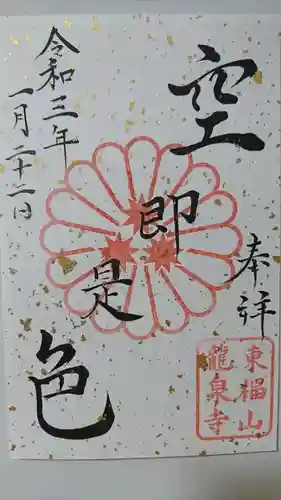 奉拝
空即是色
令和三年
一月二十二日
東福山
龍泉寺